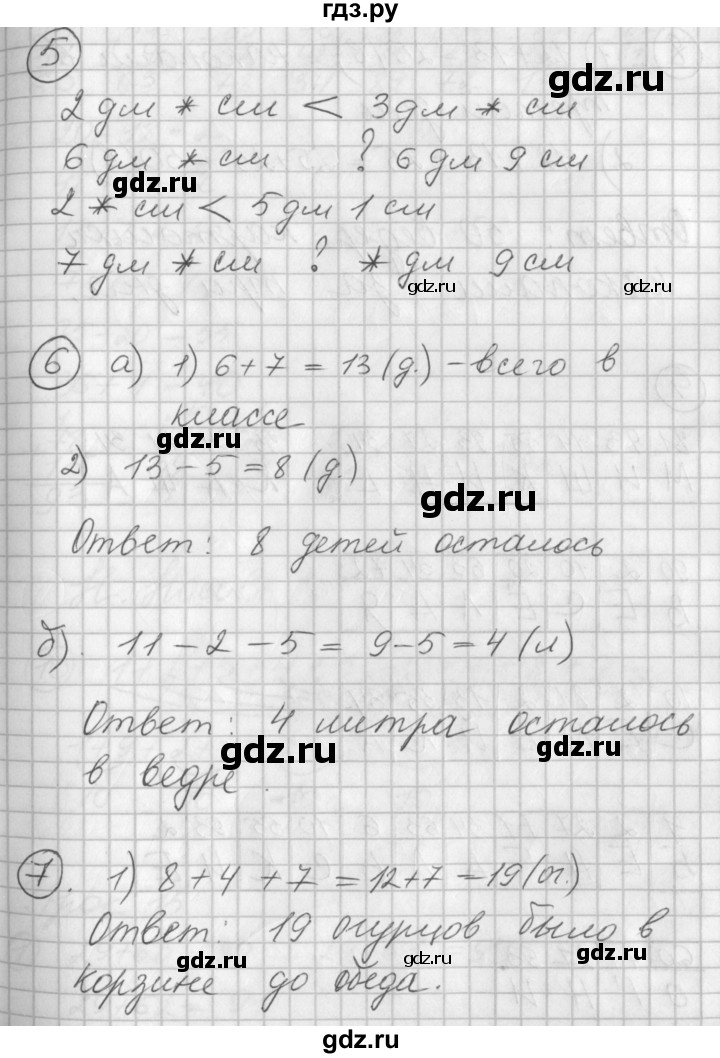 гдз.ру
5
gdz.ru
2 дм * см < 3 дм * см
6 дм * см ? 6 дм 9 см
gdz.ru
2 * см < 5 дм 1 см
7 дм * см ? * дм 9 см
gdz.ru gdz.ru
6 а) 1) 6+7 = 13 (д.) - всего в
классе
gdz.ru
2) 13 - 5 = 8 (д.)
gdz.ru
Ответ: 8 детей осталось
gdz.ru
б). 11 - 2 - 5 = 9 - 5 = 4 (л)
Ответ: 4 литра осталось
gdz.ru gdz.ru
в ведре.
7. 1) 8 + 4 + 7 = 12 + 7 = 19 (ог.)
gdz.ru
Ответ: 19 огурцов было в
gdz.ru gdz.ru
корзине до обеда.
gdz.ru